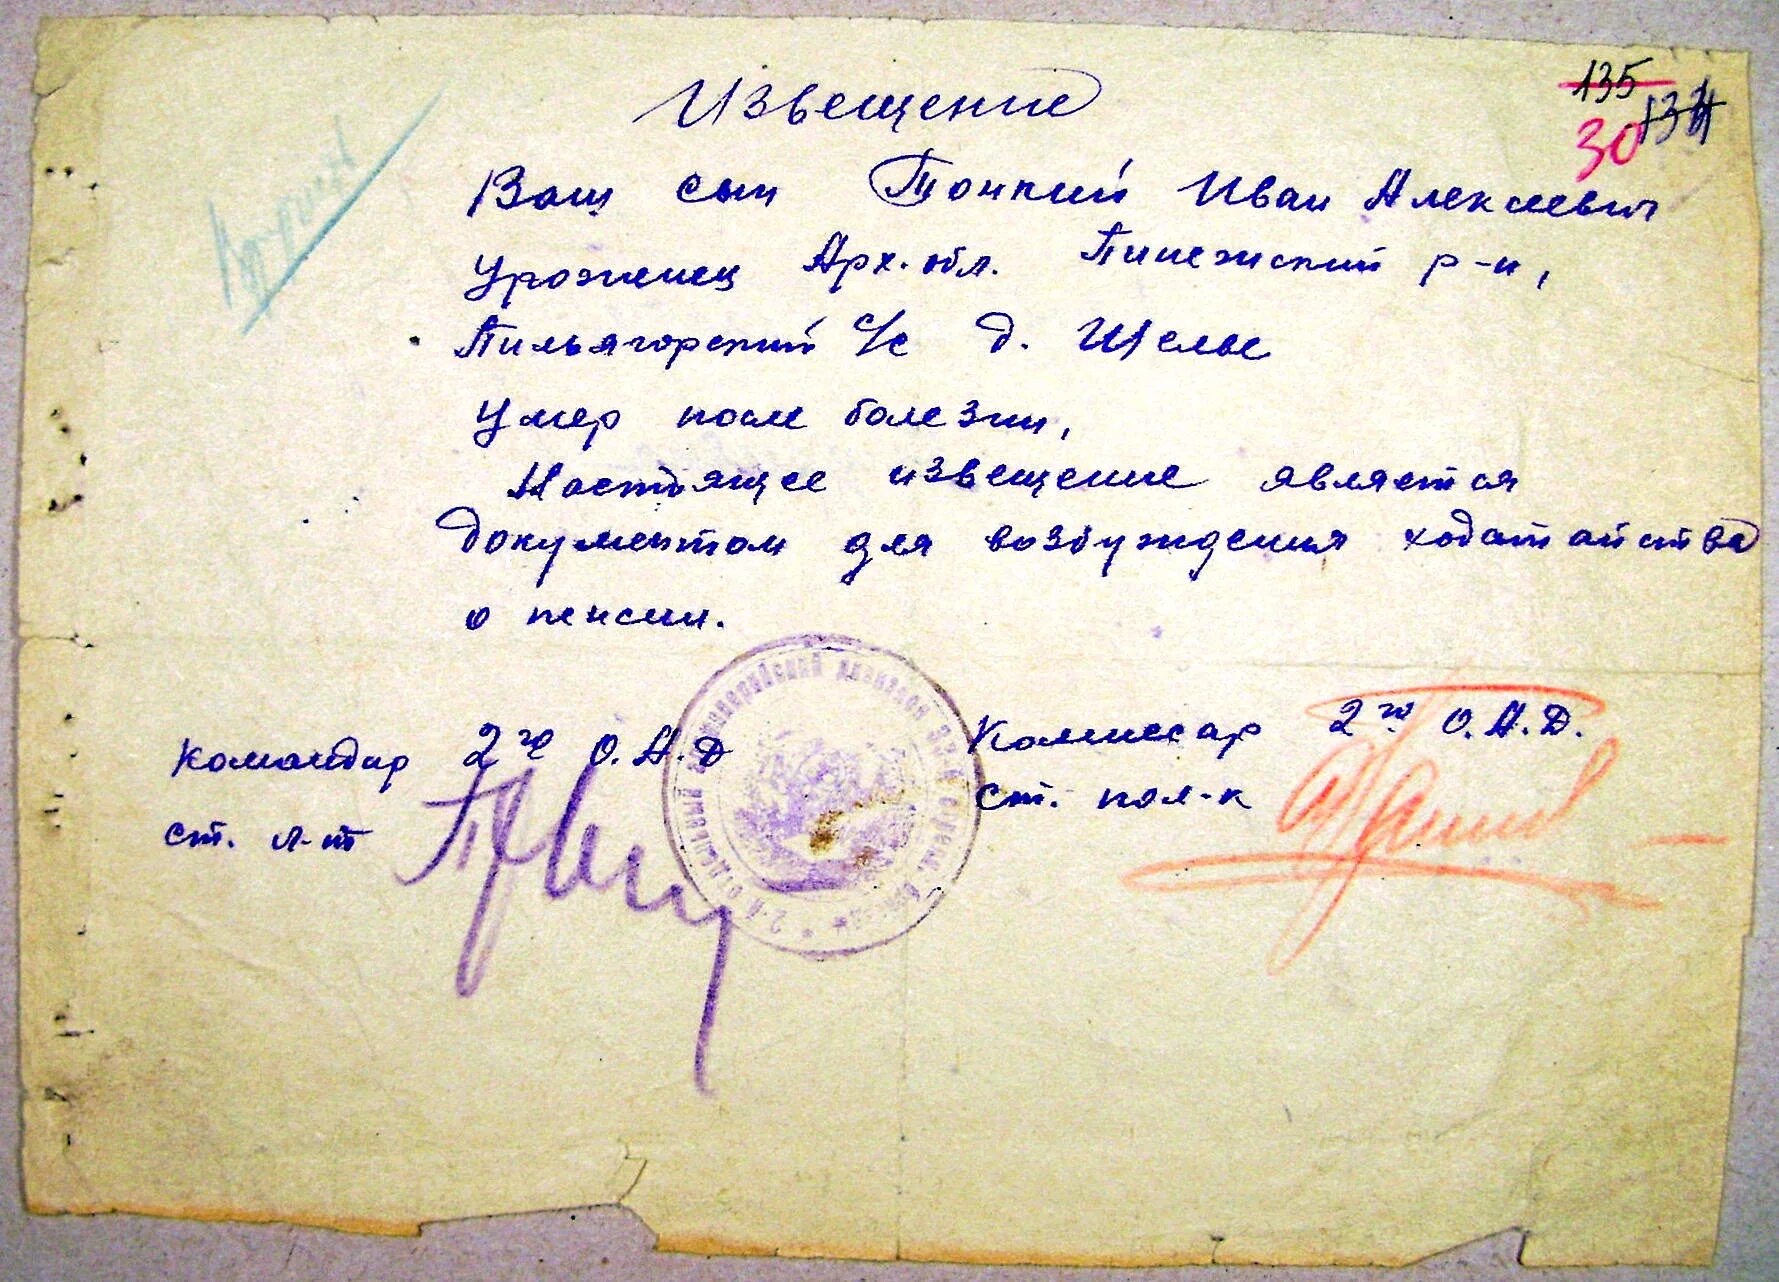 135
134
30
Извещение
Ваш сын Тонкий Иван Алексеевич
Уроженец Арх. обл. Пинежский р-н,
Пильягорский с/с д. Щелье
Умер после болезни,
Настоящее извещение является
документом для возбуждения ходатайства
о пенсии.
Командир 2го О.А.Д
ст. л-т
Комиссар 2го О.А.Д.
ст. пол-к
2-й отдельный артиллерийский дивизион